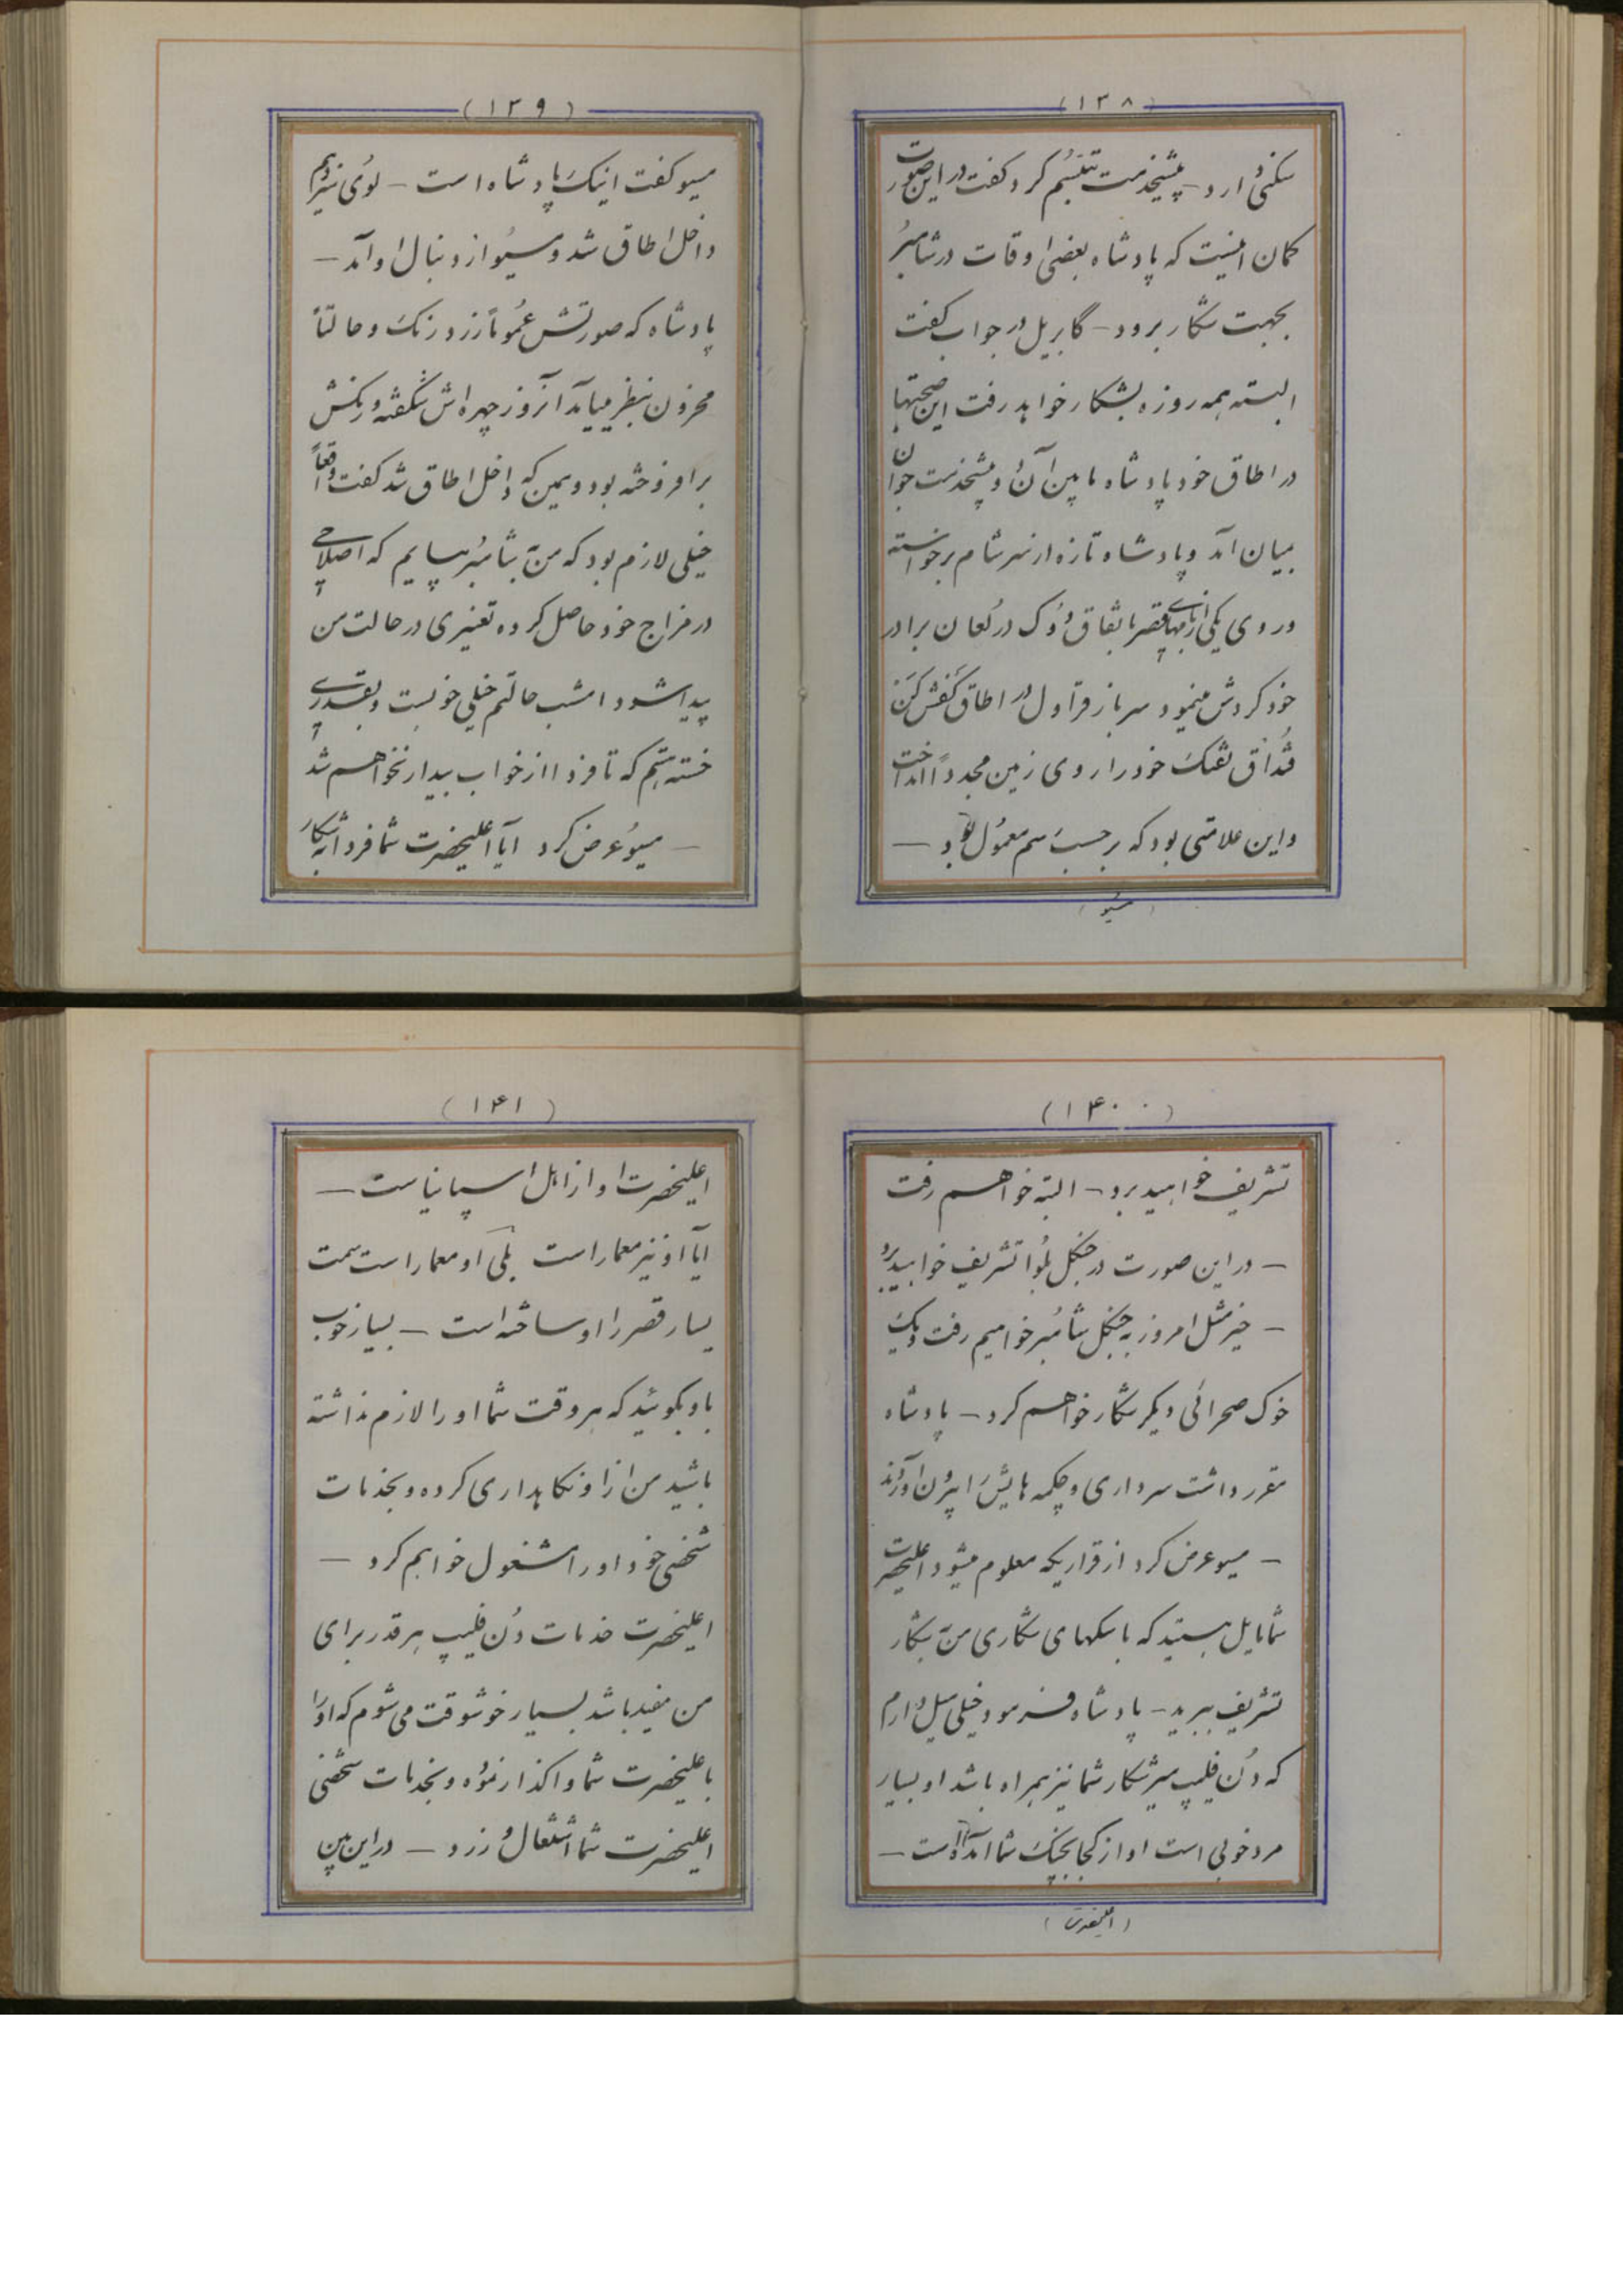 (۱۳۸)
سکنی دارد - پیشخدمت تبسم کرد گفت در این صورت
گمان اینست که پادشاه بعضی اوقات در شامبر
بجهت شکار برود - گابریل در جواب گفت
البته همه روزه بشکار خواهد رفت این صحبتها
در اطاق خود پادشاه مابین آن دو پیشخدمت جوان
بمیان آمد و پادشاه تازه از سر شام برخواسته
در روی یکی از بامهای قصر باتفاق دوک درلئان برادر
خود گردش مینمود سرباز قراول در اطاق کفش کن
قنداق تفنگ خود را روی زمین مجدداً انداخت
و این علامتی بود که بر حسب رسم معمول بود —
(مسیو)
(۱۳۹)
مسیو گفت اینک پادشاه است - لوئی سیزدهم
داخل اطاق شد و مسیو از دنبال او آمد —
پادشاه که صورتش عموماً زرد رنگ و حالتاً
محزون بنظر میآید آنروز چهره اش شگفته و رنگش
برافروخته بود و همین که داخل اطاق شد گفت واقعاً
خیلی لازم بود که من بشامبر بیایم که اصلاحی
در مزاج خود حاصل کرده تغییری در حالت من
پیدا شود امشب حالتم خیلی خوبست و بقدری
خسته هستم که تا فردا از خواب بیدار نخواهم شد
— مسیو عرض کرد آیا اعلیحضرت شما فردا بشکار
(۱۴۰)
تشریف خواهید برد - البته خواهم رفت
— در این صورت در جنگل بلوا تشریف خواهید برد
— خیر مثل امروز به جنگل شامبر خواهیم رفت و یک
خوک صحرائی دیگر شکار خواهم کرد - پادشاه
مقرر داشت سرداری و چکمه هایش را بیرون آورند
— مسیو عرض کرد از قراریکه معلوم میشود اعلیحضرت
شما مایل هستید که با سگهای شکاری من بشکار
تشریف ببرید - پادشاه فرمود خیلی میل دارم
که دن فلیپ میرشکار شما نیز همراه باشد او بسیار
مرد خوبی است او از کجا بچنگ شما آمده است —
(اعلیحضرت)
(۱۴۱)
اعلیحضرتا او از اهل اسپانیاست —
آیا او نیز معمار است بلی او معمار است سمت
یسار قصر را او ساخته است - بسیار خوب
باو بگوئید که هر وقت شما او را لازم نداشته
باشید من از او نگاهداری کرده و بخدمات
شخصی خود او را مشغول خواهم کرد —
اعلیحضرت خدمات دن فلیپ هر قدر برای
من مفید باشد بسیار خوشوقت می شوم که او را
باعلیحضرت شما واگذار نموده و بخدمات شخصی
اعلیحضرت شما اشتغال ورزد - در این بین